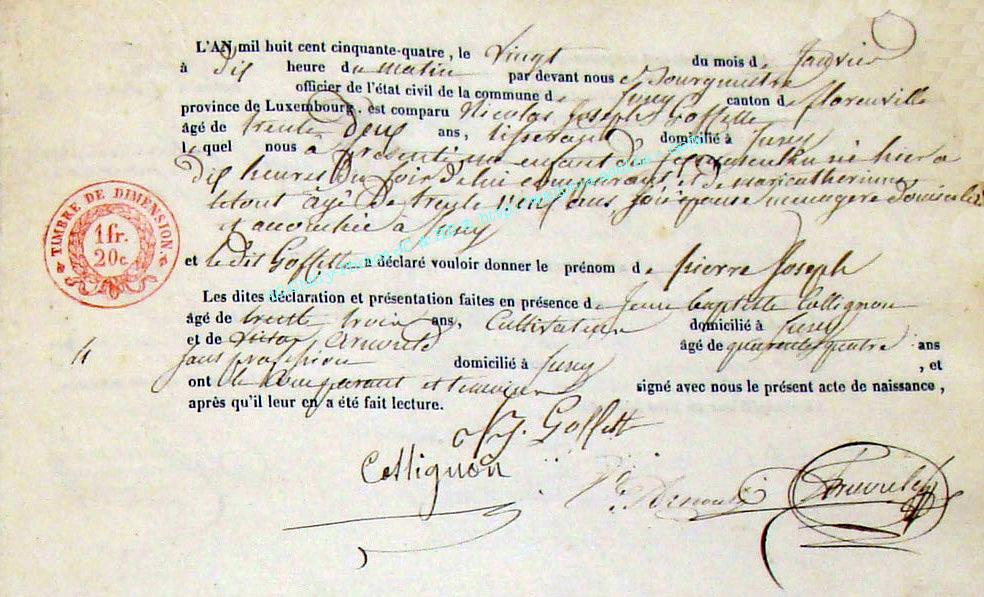 L'AN mil huit cent cinquante-quatre, le vingt du mois de Janvier
à dix heure du matin par devant nous Bourgmestre
officier de l'état civil de la commune de canton de florenville
province de Luxembourg, est comparu Nicolas Joseph Goffette
âgé de trente deux ans, tisserand domicilié à
lequel nous a présenté un enfant de sexe masculin né hier a
dix heures du soir de lui comparant et de Marie catherinne
âgé de trente neuf ans, son épouse menagere domiciliée
et accouchée a
et ledit Goffette a déclaré vouloir donner le prénom de pierre Joseph
Les dites déclaration et présentation faites en présence de Jean baptiste Collignon
âgé de trente trois ans, Cultivateur domicilié à
et de victor Arnould âgé de quarante quatre ans
4 sans profession domicilié à , et
ont le comparant et temoins signé avec nous le présent acte de naissance,
après qu'il leur en a été fait lecture.
TIMBRE DE DIMENSION
1 fr.
20 c.
N J. Goffette
Collignon
V. Arnould